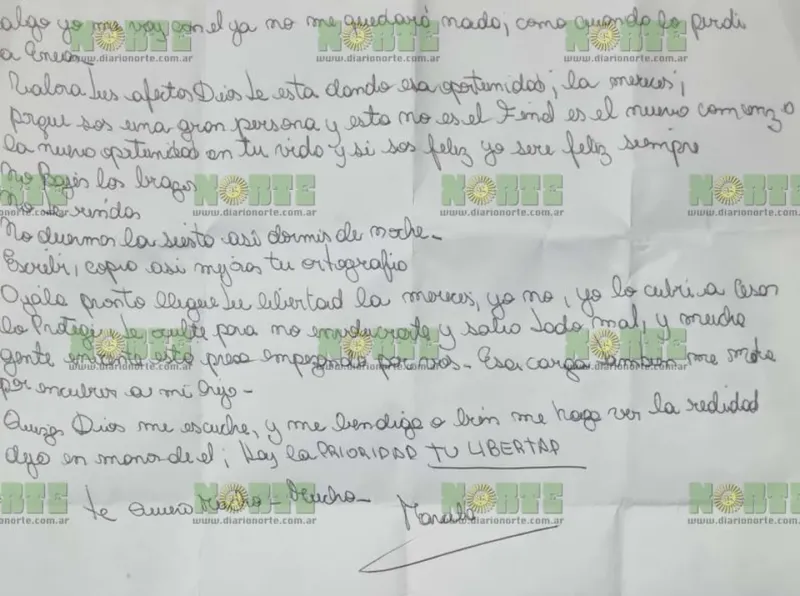 algo yo me voy con el ya no me quedará nada; como cuando lo perdi
a Eneas.
Valora tus afectos Dios te esta dando esa oportunidad; la mereces;
porque sos una gran persona y esta no es el Find es el nuevo comienzo
la nueva oportunidad en tu vida y si sos feliz yo sere feliz siempre
No Bajes los brazos
No te rindas
No duermas la siesta asi dormis de noche-
Escribi, copia asi mejoras tu ortografia
Ojala pronto llegue tu libertad la mereces, yo no, yo lo cubri a Cesar
lo Protegi te oculte para no involucrarte y salio todo mal, y mucha
gente inocente esta presa empezando por vos- Esa carga tambien me mata
por encubrir a mi hijo-
Quizas Dios me escuche, y me bendiga o bien me haga ver la realidad
dejo en manos de el; hoy la PRIORIDAD TU LIBERTAD
te Quiero Mucho- Mucho-
Marcela
NORTE
www.diarionorte.com.ar